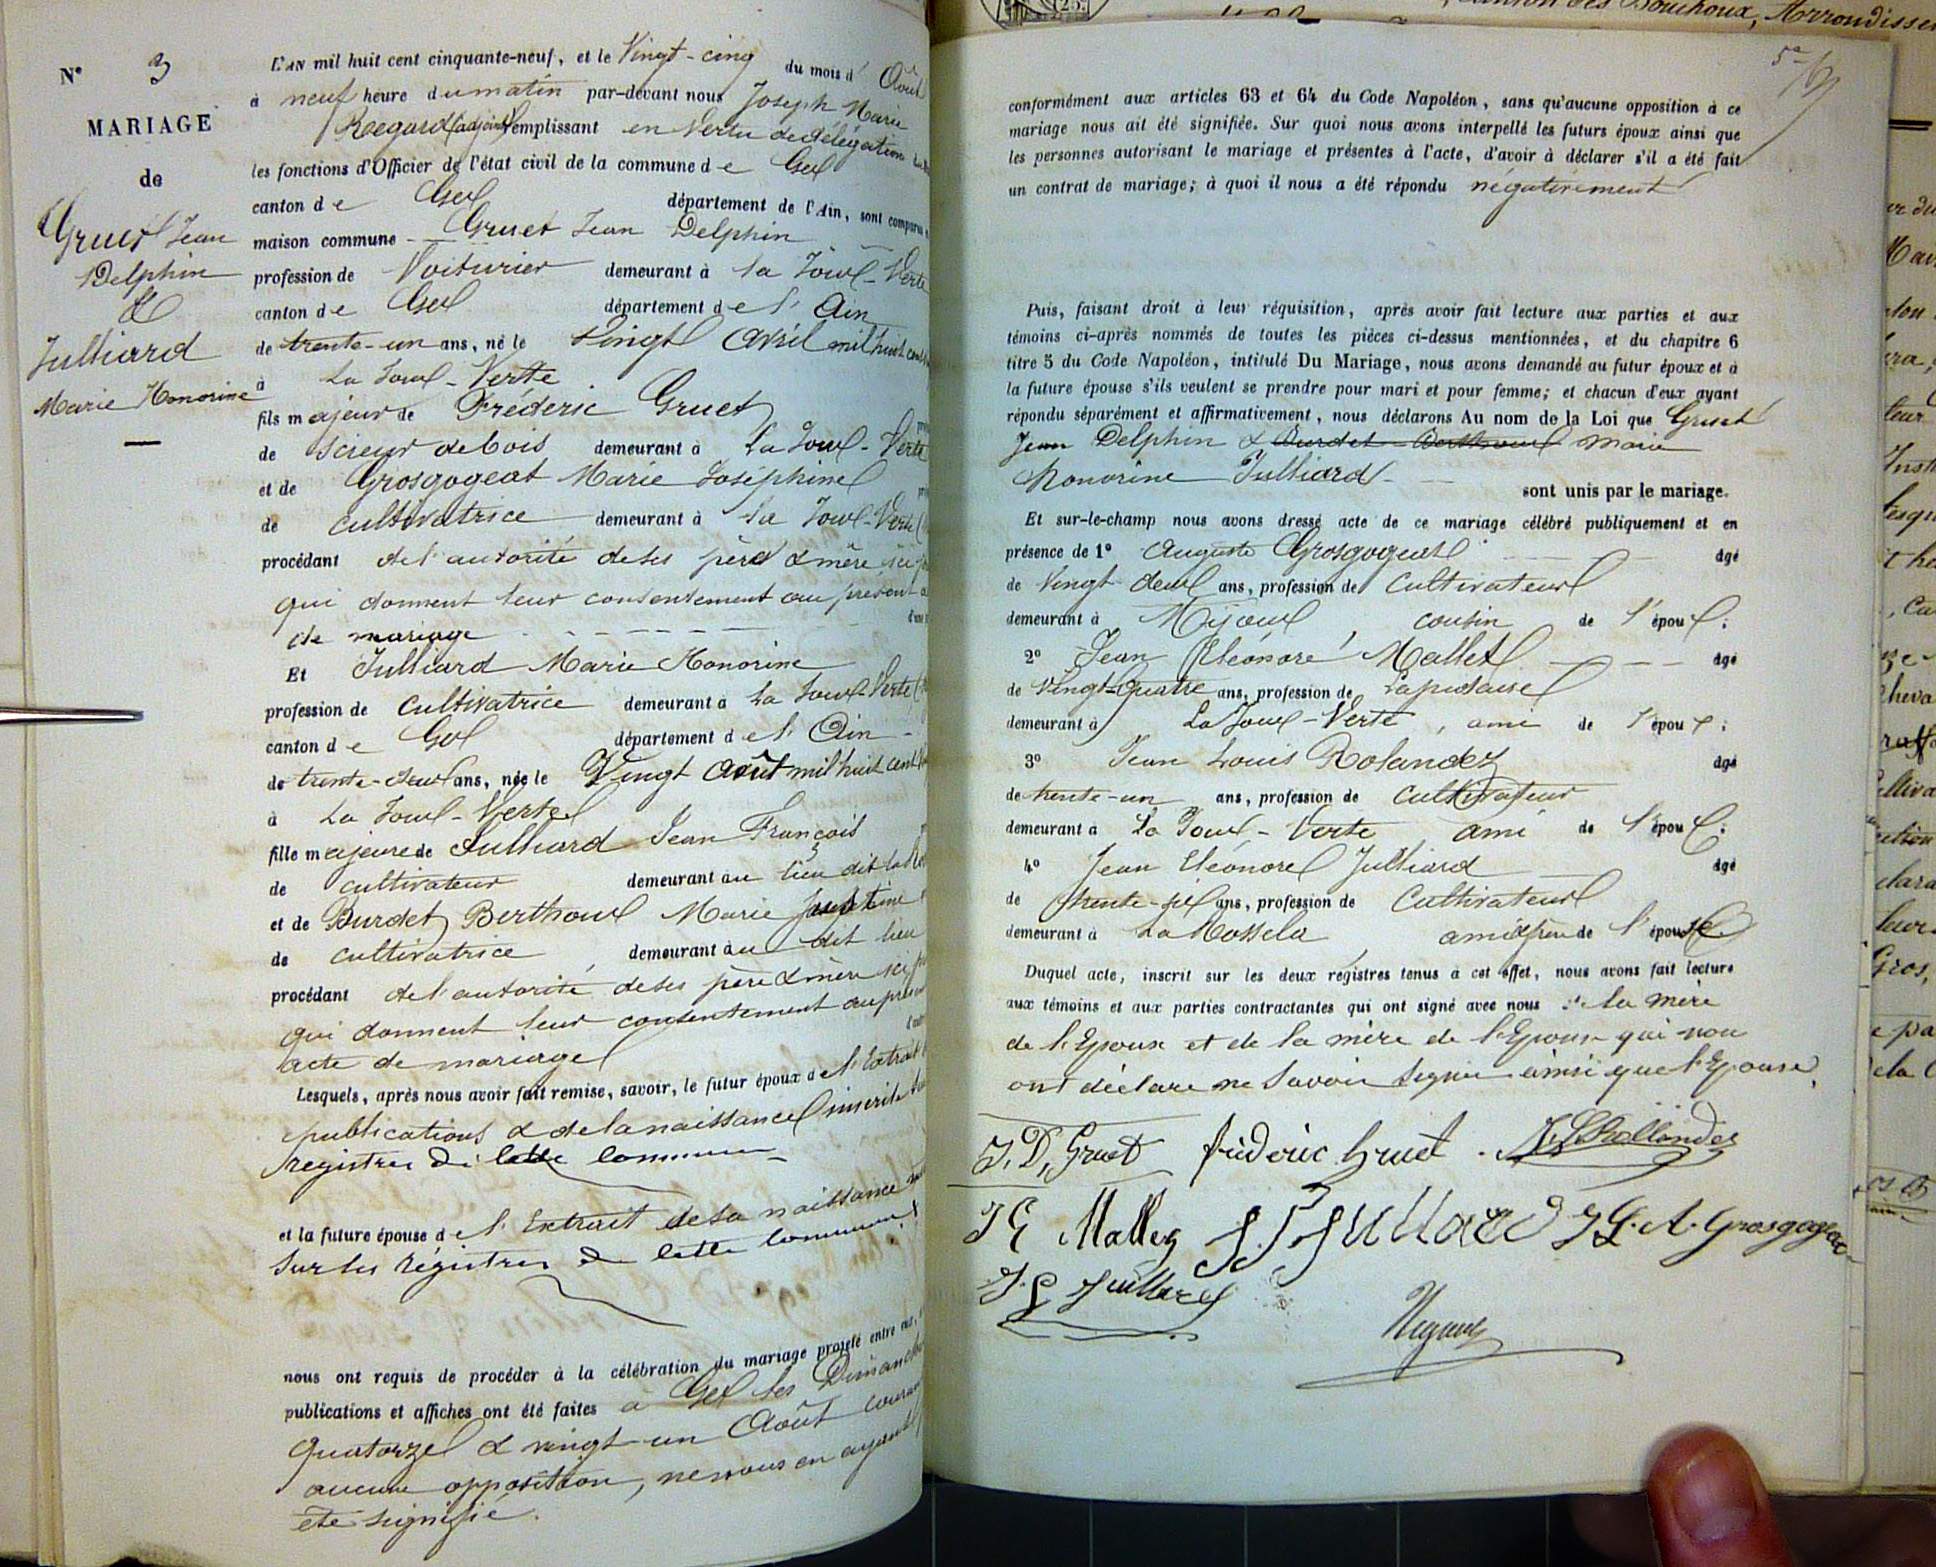 N° 3
MARIAGE
de
Gruet Jean
Delphin
&
Julliard
Marie Honorine
L'AN mil huit cent cinquante-neuf, et le Vingt-cinq du mois d' Août
à neuf heure du matin par-devant nous Joseph Marie
Regard (adjoint) remplissant en vertu de délégation
les fonctions d'Officier de l'état civil de la commune de Gex
canton de Gex département de l'Ain, sont comparus
maison commune Gruet Jean Delphin
profession de Voiturier demeurant à la Joux-Verte
canton de Gex département de l'Ain
de trente-un ans, né le vingt Avril mil huit cent
à La Joux-Verte
fils majeur de Fréderic Gruet
de scieur de bois demeurant à La Joux-Verte
et de Grosgogeat Marie Joséphine
de cultivatrice demeurant à la Joux-Verte
procédant de l'autorité de ses père & mère ici
qui donnent leur consentement au présent
de mariage
Et Julliard Marie Honorine
profession de Cultivatrice demeurant à La Joux-Verte
canton de Gex département de l'Ain
de trente- ans, née le Vingt Août mil huit cent
à La Joux-Verte
fille majeure de Julliard Jean François
de cultivateur demeurant au lieu dit la
et de Burdet Berthoux Marie Josephine
de cultivatrice demeurant au dit lieu
procédant de l'autorité de ses père & mère ici
qui donnent leur consentement au présent
acte de mariage
Lesquels, après nous avoir fait remise, savoir, le futur époux de l'Extrait
publications & de la naissance inscrite
registres de cette commune
et la future épouse de l'Extrait de sa naissance
sur les régistres de cette commune
nous ont requis de procéder à la célébration du mariage projeté entre eux,
publications et affiches ont été faites à Gex les Dimanches
quatorze & vingt-un Août courant
aucune opposition, ne nous en ayant
été signifié.
5e
conformément aux articles 63 et 64 du Code Napoléon, sans qu'aucune opposition à ce
mariage nous ait été signifiée. Sur quoi nous avons interpellé les futurs époux ainsi que
les personnes autorisant le mariage et présentes à l'acte, d'avoir à déclarer s'il a été fait
un contrat de mariage; à quoi il nous a été répondu négativement
Puis, faisant droit à leur réquisition, après avoir fait lecture aux parties et aux
témoins ci-après nommés de toutes les pièces ci-dessus mentionnées, et du chapitre 6
titre 5 du Code Napoléon, intitulé Du Mariage, nous avons demandé au futur époux et à
la future épouse s'ils veulent se prendre pour mari et pour femme; et chacun d'eux ayant
répondu séparément et affirmativement, nous déclarons Au nom de la Loi que Gruet
Jean Delphin & Burdet Berthoux Marie
honorine Julliard
sont unis par le mariage.
Et sur-le-champ nous avons dressé acte de ce mariage célébré publiquement et en
présence de 1° Auguste Grosgogeat âgé
de Vingt-deux ans, profession de Cultivateur
demeurant à Mijoux, cousin de l'époux;
2° Jean Eléonore Mallet âgé
de Vingt-Quatre ans, profession de Lapidaire
demeurant à La Joux-Verte, ami de l'époux;
3° Jean Louis Rolandez âgé
de trente-un ans, profession de Cultivateur
demeurant à La Joux-Verte ami de l'époux;
4° Jean Eléonore Julliard âgé
de trente-six ans, profession de Cultivateur
demeurant à La Mossela, ami & frère de l'épouse
Duquel acte, inscrit sur les deux régistres tenus à cet effet, nous avons fait lecture
aux témoins et aux parties contractantes qui ont signé avec nous la mère
de l'Epoux et de la mère de l'Epouse qui nou
ont déclare ne Savoir Signer ainsi que l'Epouse.
J. D. Gruet frédéric Gruet
J E Mallez J. F Julliard J G. A. Grosgogeat
J. E Juillard
Regard